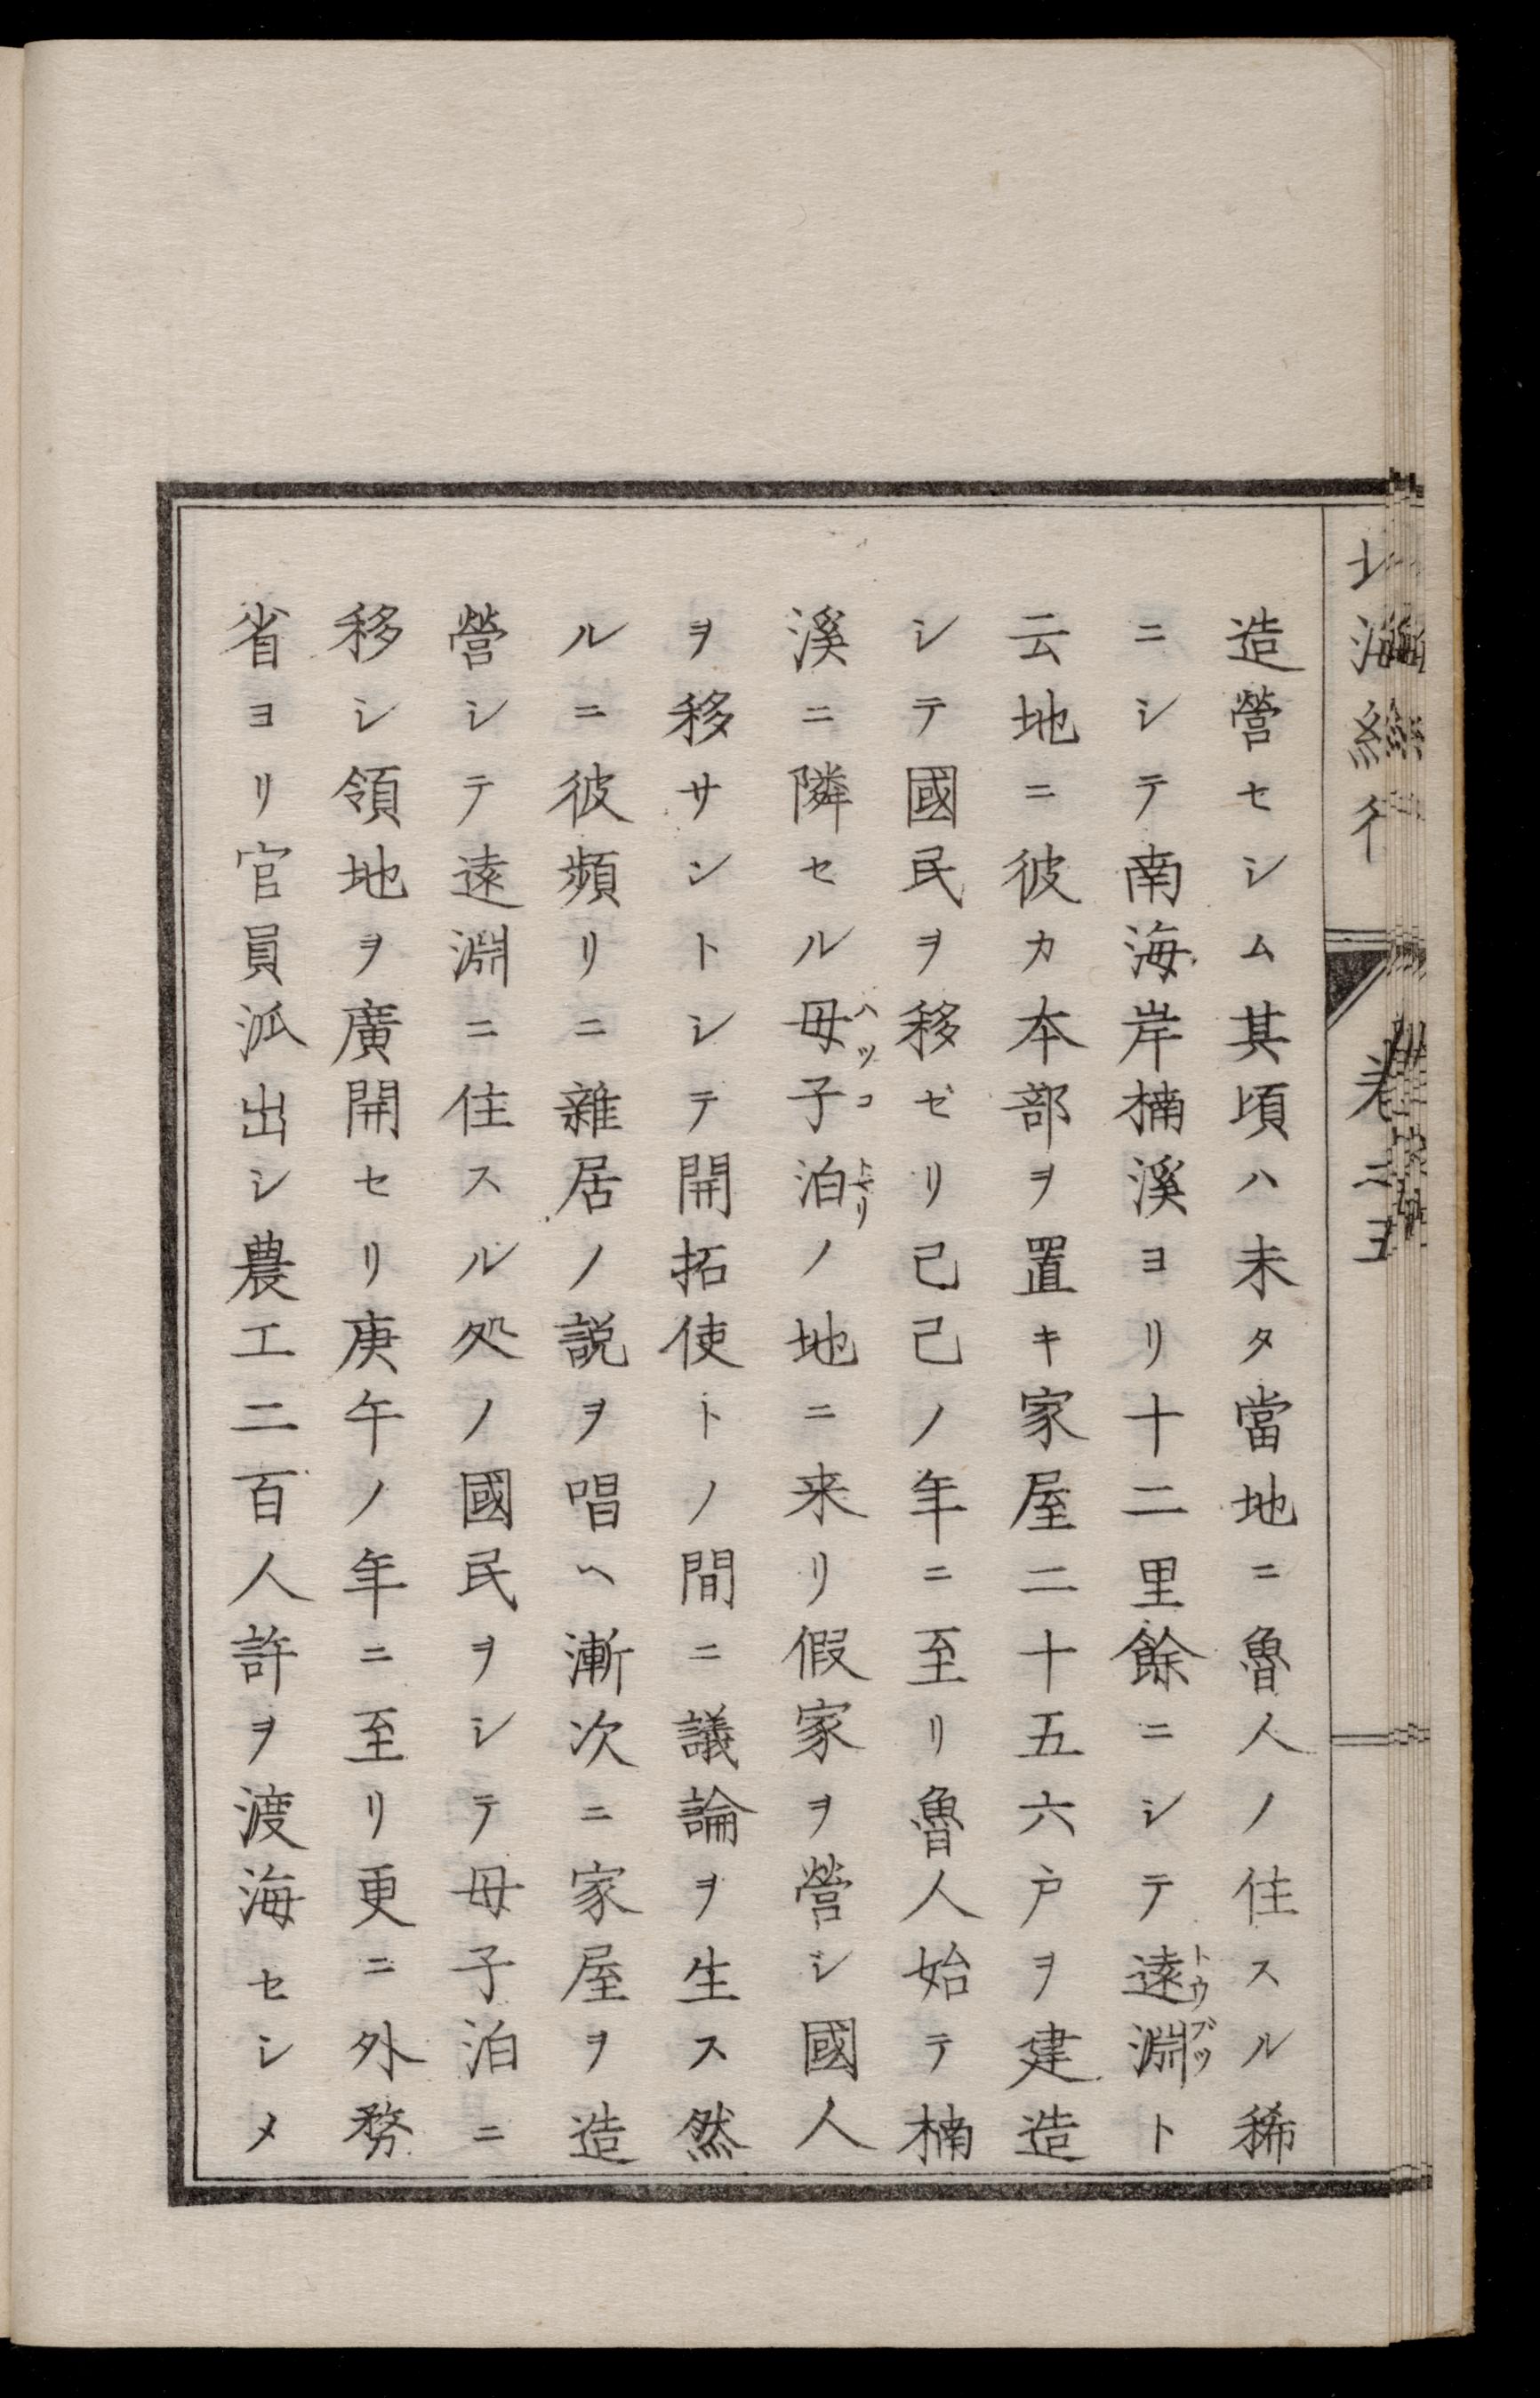 造營セシム其頃ハ未タ當地ニ魯人ノ住スル稀
ニシテ南海岸楠溪ヨリ十二里餘ニシテ遠淵ト
トウブツ
云地ニ彼カ本部ヲ置キ家屋二十五六戸ヲ建造
シテ國民ヲ移ゼリ己己ノ年ニ至リ魯人始テ楠
溪ニ隣セル母子泊ノ地ニ来リ假家ヲ營シ國人
ハツコトマリ
ヲ移サシトシテ開拓使トノ間ニ議論ヲ生ス然
ルニ彼頻リニ雜居ノ説ヲ唱ヘ漸次ニ家屋ヲ造
營シテ遠淵ニ住スル処ノ國民ヲシテ母子泊ニ
移シ領地ヲ廣開セリ庚午ノ年ニ至リ更ニ外務
省ヨリ官員泒出シ農工二百人許ヲ渡海セシメ